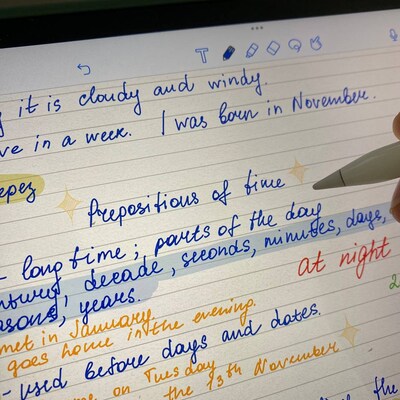 it is cloudy and windy.
ve in a week. I was born in November.
Prepositions of time
- long time; parts of the day
ntury, decade, seconds, minutes, days,
asons, years.
at night
met in January
goes home in the evening.
- used before days and dates.
on Tuesday
the 13th November
the